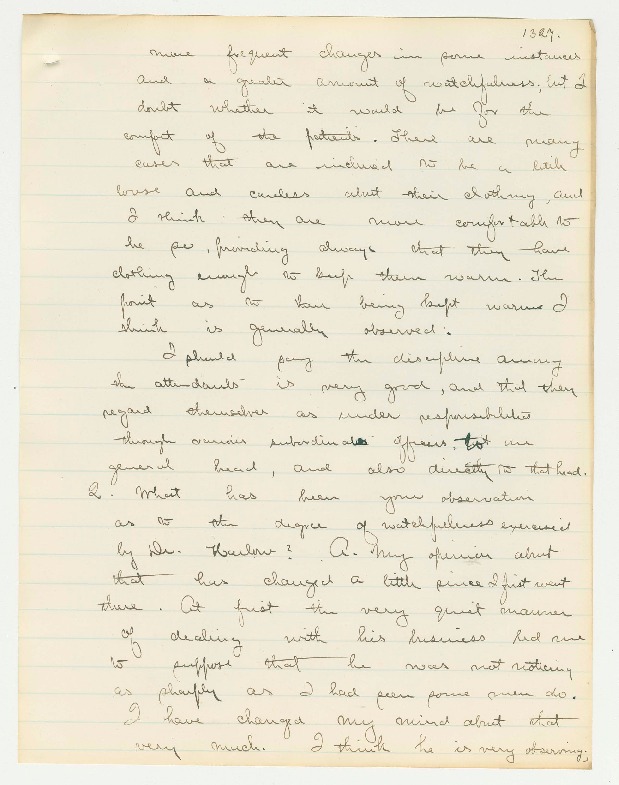 1327.
more frequent changes in some instances
and a greater amount of watchfulness, but I
doubt whether it would be for the
comfort of the patients. There are many
cases that are inclined to be a little
loose and careless about their clothing, and
I think they are more comfortable to
be so, providing always that they have
clothing enough to keep them warm. The
point as to their being kept warm I
think is generally observed.
I should say the discipline among
the attendants is very good, and that they
regard themselves as under responsibilities
through various subordinate officers, to one
general head, and also directly to that head.
Q. What has been your observation
as to the degree of watchfulness exercised
by Dr. Harlow? A. My opinion about
that has changed a little since I first went
there. At first the very quiet manner
of dealing with his business led me
to suppose that he was not noticing
as sharply as I had seen some men do.
I have changed my mind about that
very much. I think he is very observing;